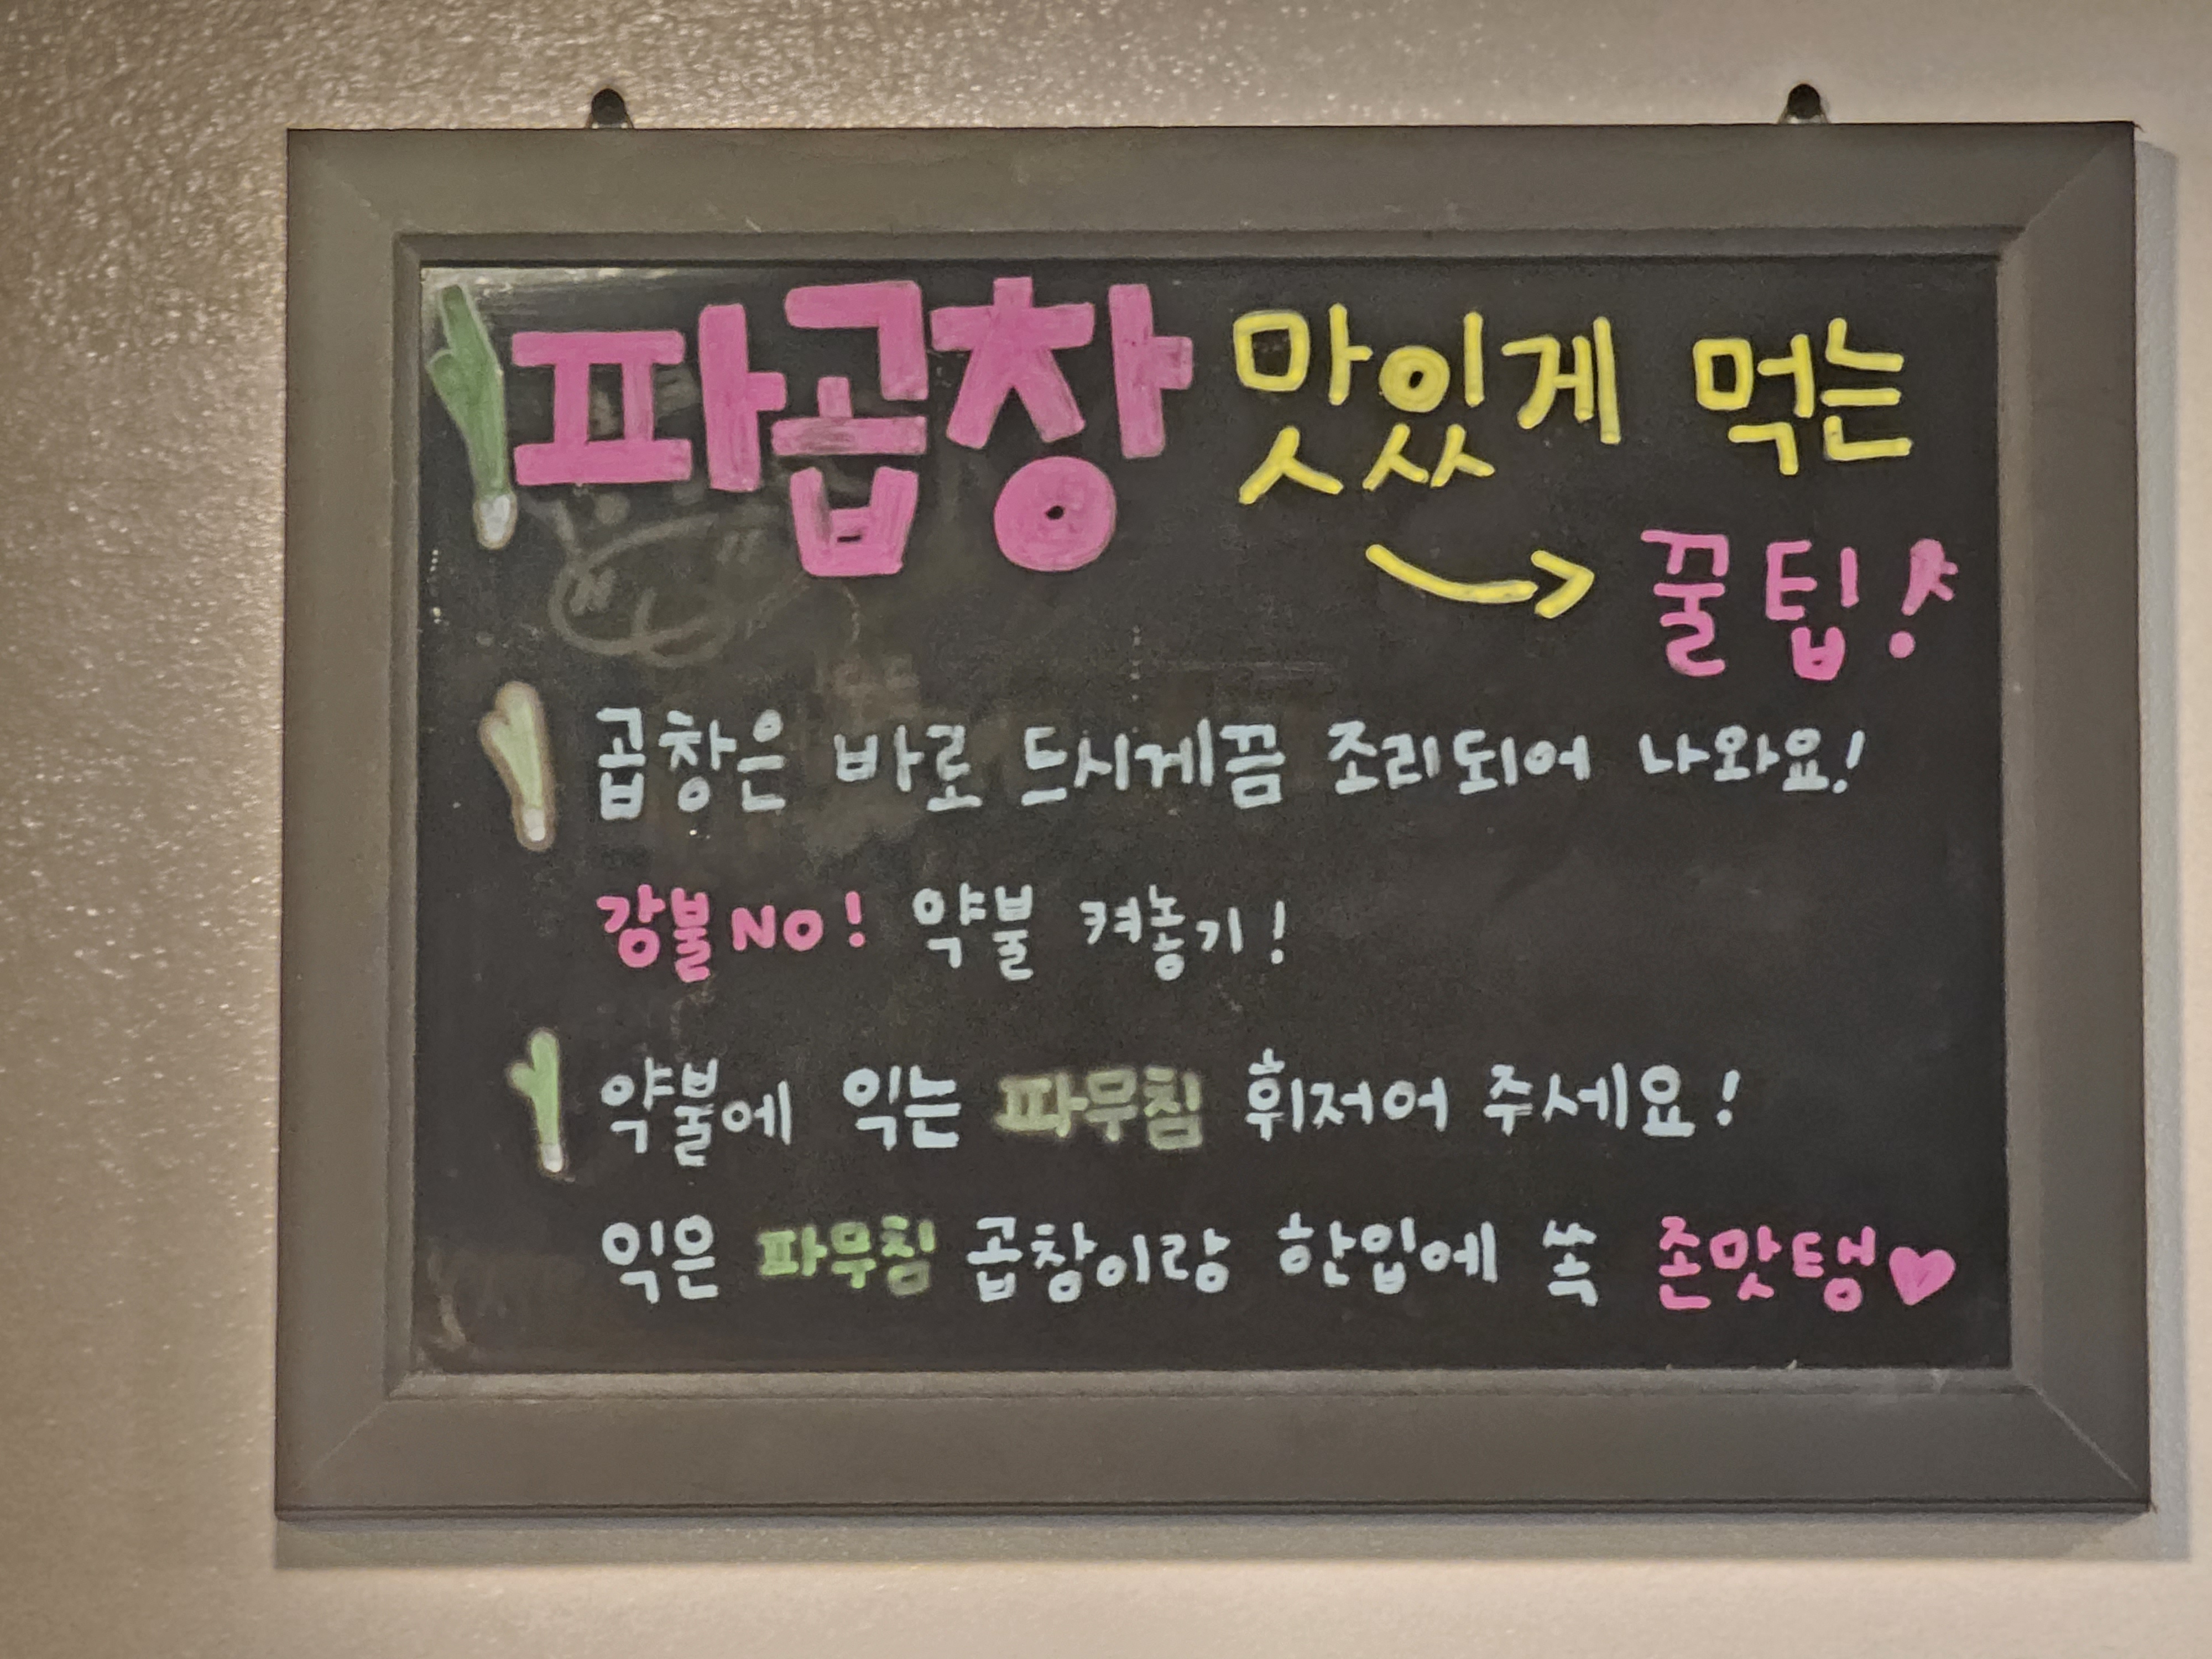 파곱창 맛있게 먹는
꿀팁!
곱창은 바로 드시게끔 조리되어 나와요!
강불NO! 약불 켜놓기!
약불에 익는 파무침 휘저어 주세요!
익은 파무침 곱창이랑 한입에 쏙 존맛탱♥